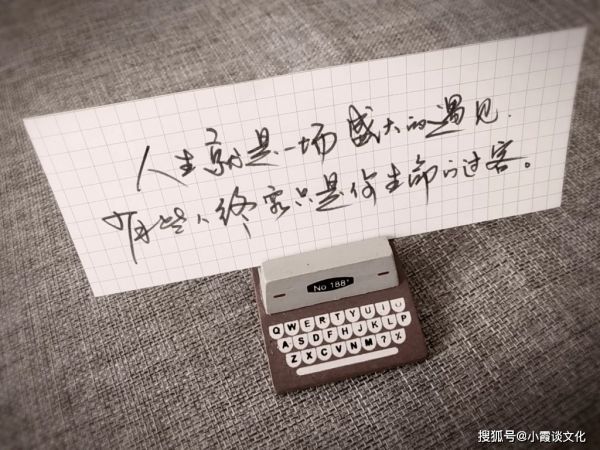 人生就是一场盛大的遇见.
有些人终究只是你生命的过客。
No 188
QWERTYUI
ASDFHJKLP
ZXCVNM?X
搜狐号@小霞谈文化